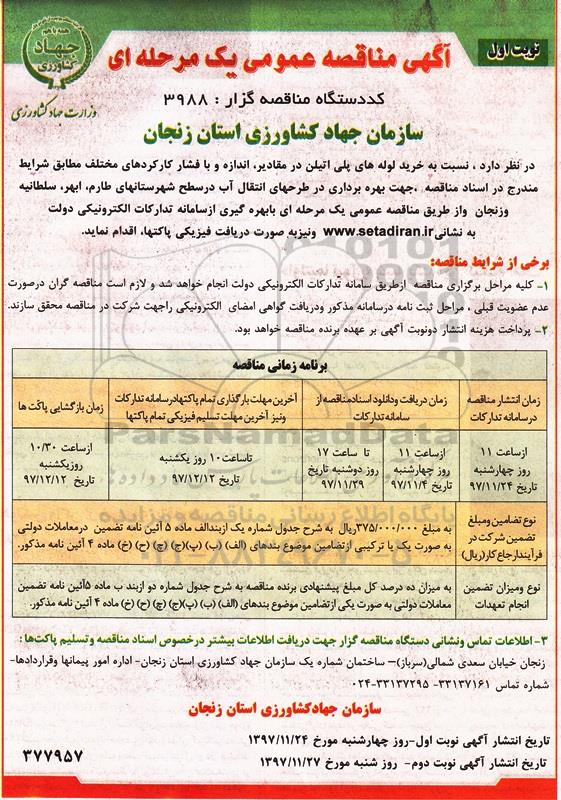 نوبت اول
آگهی مناقصه عمومی یک مرحله ای
همه با هم
جهاد
کشاورزی
وزارت جهاد کشاورزی
کددستگاه مناقصه گزار : ۳۹۸۸
سازمان جهاد کشاورزی استان زنجان
در نظر دارد ، نسبت به خرید لوله های پلی اتیلن در مقادیر، اندازه و با فشار کارکردهای مختلف مطابق شرایط
مندرج در اسناد مناقصه ،جهت بهره برداری در طرحهای انتقال آب درسطح شهرستانهای طارم، ابهر، سلطانیه
وزنجان واز طریق مناقصه عمومی یک مرحله ای بابهره گیری ازسامانه تدارکات الکترونیکی دولت
به نشانی www.setadiran.ir ونیزبه صورت دریافت فیزیکی پاکتها، اقدام نماید.
برخی از شرایط مناقصه:
۱- کلیه مراحل برگزاری مناقصه ازطریق سامانه تدارکات الکترونیکی دولت انجام خواهد شد و لازم است مناقصه گران درصورت
عدم عضویت قبلی ، مراحل ثبت نامه درسامانه مذکور ودریافت گواهی امضای الکترونیکی راجهت شرکت در مناقصه محقق سازند.
۲- پرداخت هزینه انتشار دونوبت آگهی بر عهده برنده مناقصه خواهد بود.
برنامه زمانی مناقصه
زمان انتشار مناقصه درسامانه تدارکات
زمان دریافت ودانلود اسنادمناقصه از سامانه تدارکات
آخرین مهلت بارگذاری تمام پاکتهادرسامانه تدارکات ونیز آخرین مهلت تسلیم فیزیکی تمام پاکتها
زمان بازگشایی پاکت ها
ازساعت ۱۱ روز چهارشنبه تاریخ ۹۷/۱۱/۲۴
ازساعت ۱۱ روز چهارشنبه تاریخ ۹۷/۱۱/۴
تا ساعت ۱۷ روز دوشنبه تاریخ ۹۷/۱۱/۲۹
تاساعت۱۰ روز یکشنبه تاریخ ۹۷/۱۲/۱۲
ازساعت ۱۰/۳۰ روزیکشنبه تاریخ ۹۷/۱۲/۱۲
نوع تضامین ومبلغ تضمین شرکت در فرآیندارجاع کار(ریال)
به مبلغ ۳۷۵/۰۰۰/۰۰۰ریال به شرح جدول شماره یک ازبندالف ماده ۵ آئین نامه تضمین درمعاملات دولتی
به صورت یک یا ترکیبی ازتضامین موضوع بندهای (الف) (ب) (پ)(ج) (چ) (ح) (خ) ماده ۴ آئین نامه مذکور.
نوع ومیزان تضمین انجام تعهدات
به میزان ده درصد کل مبلغ پیشنهادی برنده مناقصه به شرح جدول شماره دو ازبند ب ماده ۵آئین نامه تضمین
معاملات دولتی به صورت یکی ازتضامین موضوع بندهای (الف) (ب) (پ)(ج) (چ) (ح) (خ) ماده ۴ آئین نامه مذکور.
۳- اطلاعات تماس ونشانی دستگاه مناقصه گزار جهت دریافت اطلاعات بیشتر درخصوص اسناد مناقصه وتسلیم پاکت‌ها :
زنجان خیابان سعدی شمالی(سرباز)– ساختمان شماره یک سازمان جهاد کشاورزی استان زنجان- اداره امور پیمانها وقراردادها-
شماره تماس ۳۳۱۳۷۱۶۱- ۳۳۱۳۷۲۹۵-۰۲۴
سازمان جهادکشاورزی استان زنجان
تاریخ انتشار آگهی نوبت اول-روز چهارشنبه مورخ ۱۳۹۷/۱۱/۲۴
تاریخ انتشار آگهی نوبت دوم- روز شنبه مورخ ۱۳۹۷/۱۱/۲۷
۳۷۷۹۵۷
ParsNamadData
پایگاه اطلاع رسانی مناقصه و مزایده